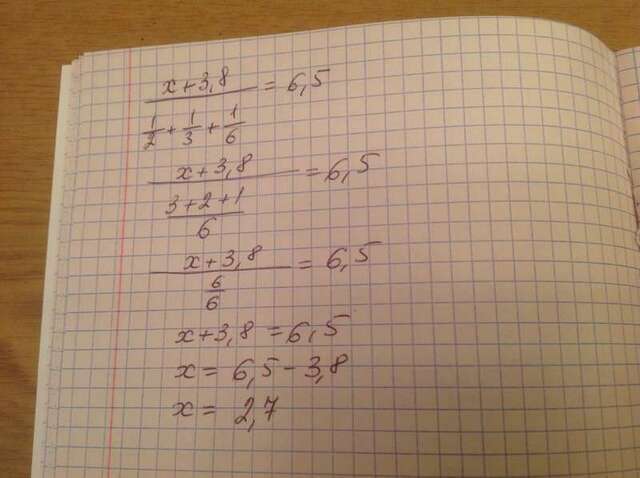 x+3,8 / (1/2 + 1/3 + 1/6) = 6,5
x+3,8 / ((3+2+1)/6) = 6,5
x+3,8 / (6/6) = 6,5
x+3,8 = 6,5
x = 6,5 - 3,8
x = 2,7